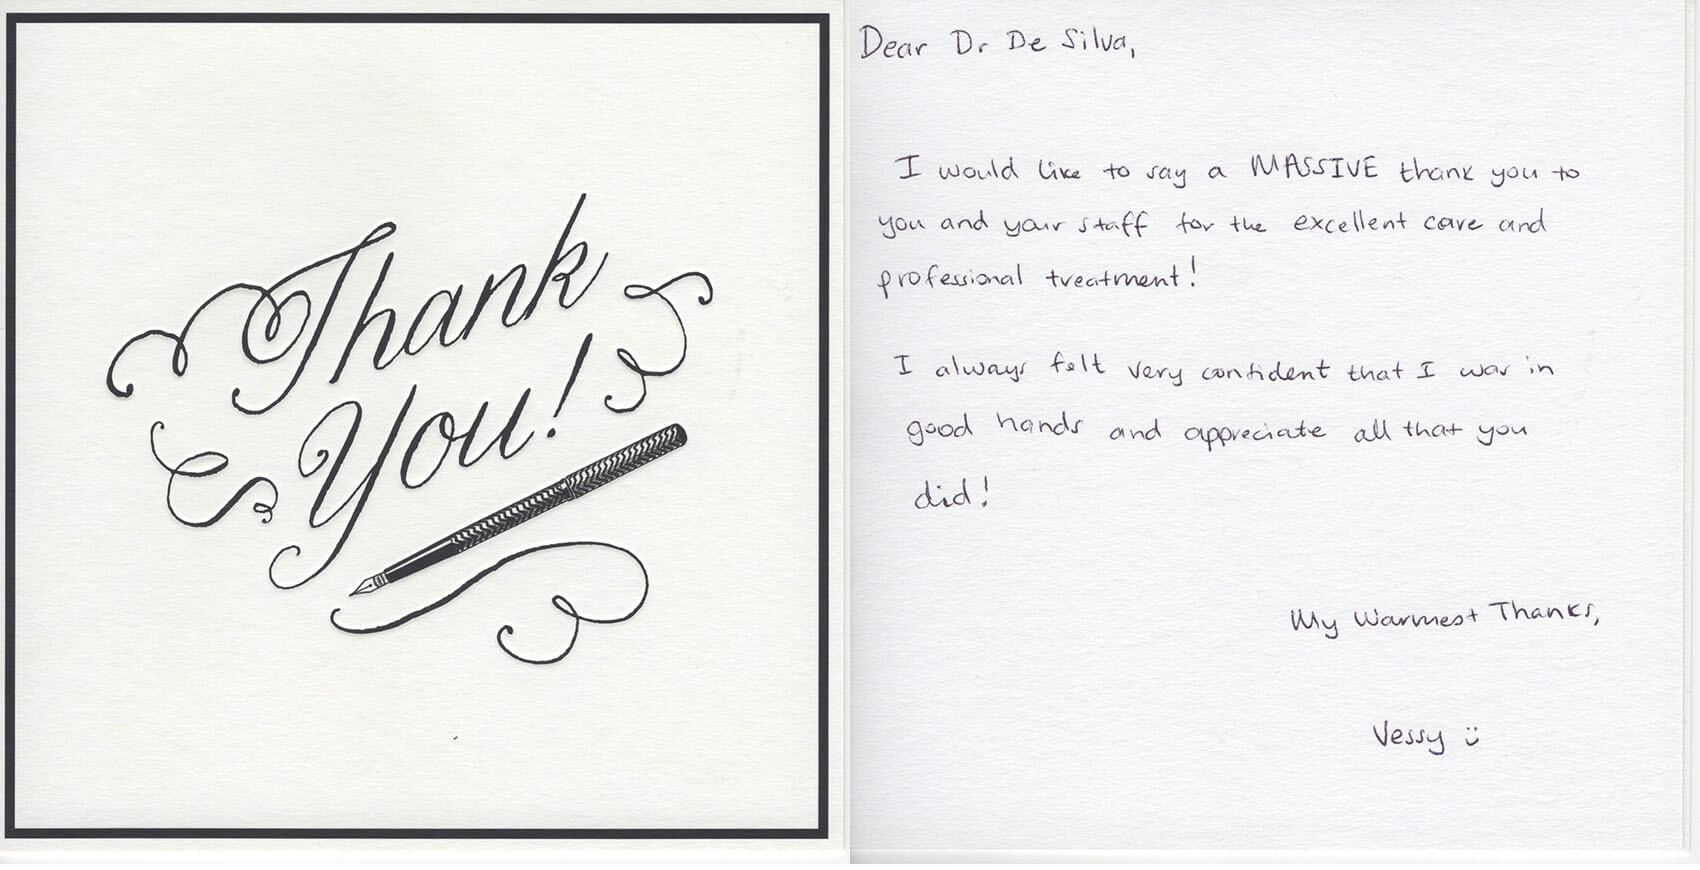 Thank
You!
Dear Dr De Silva,
I would like to say a MASSIVE thank you to
you and your staff for the excellent care and
professional treatment!
I always felt very confident that I was in
good hands and appreciate all that you
did!
My Warmest Thanks,
Vessy ü